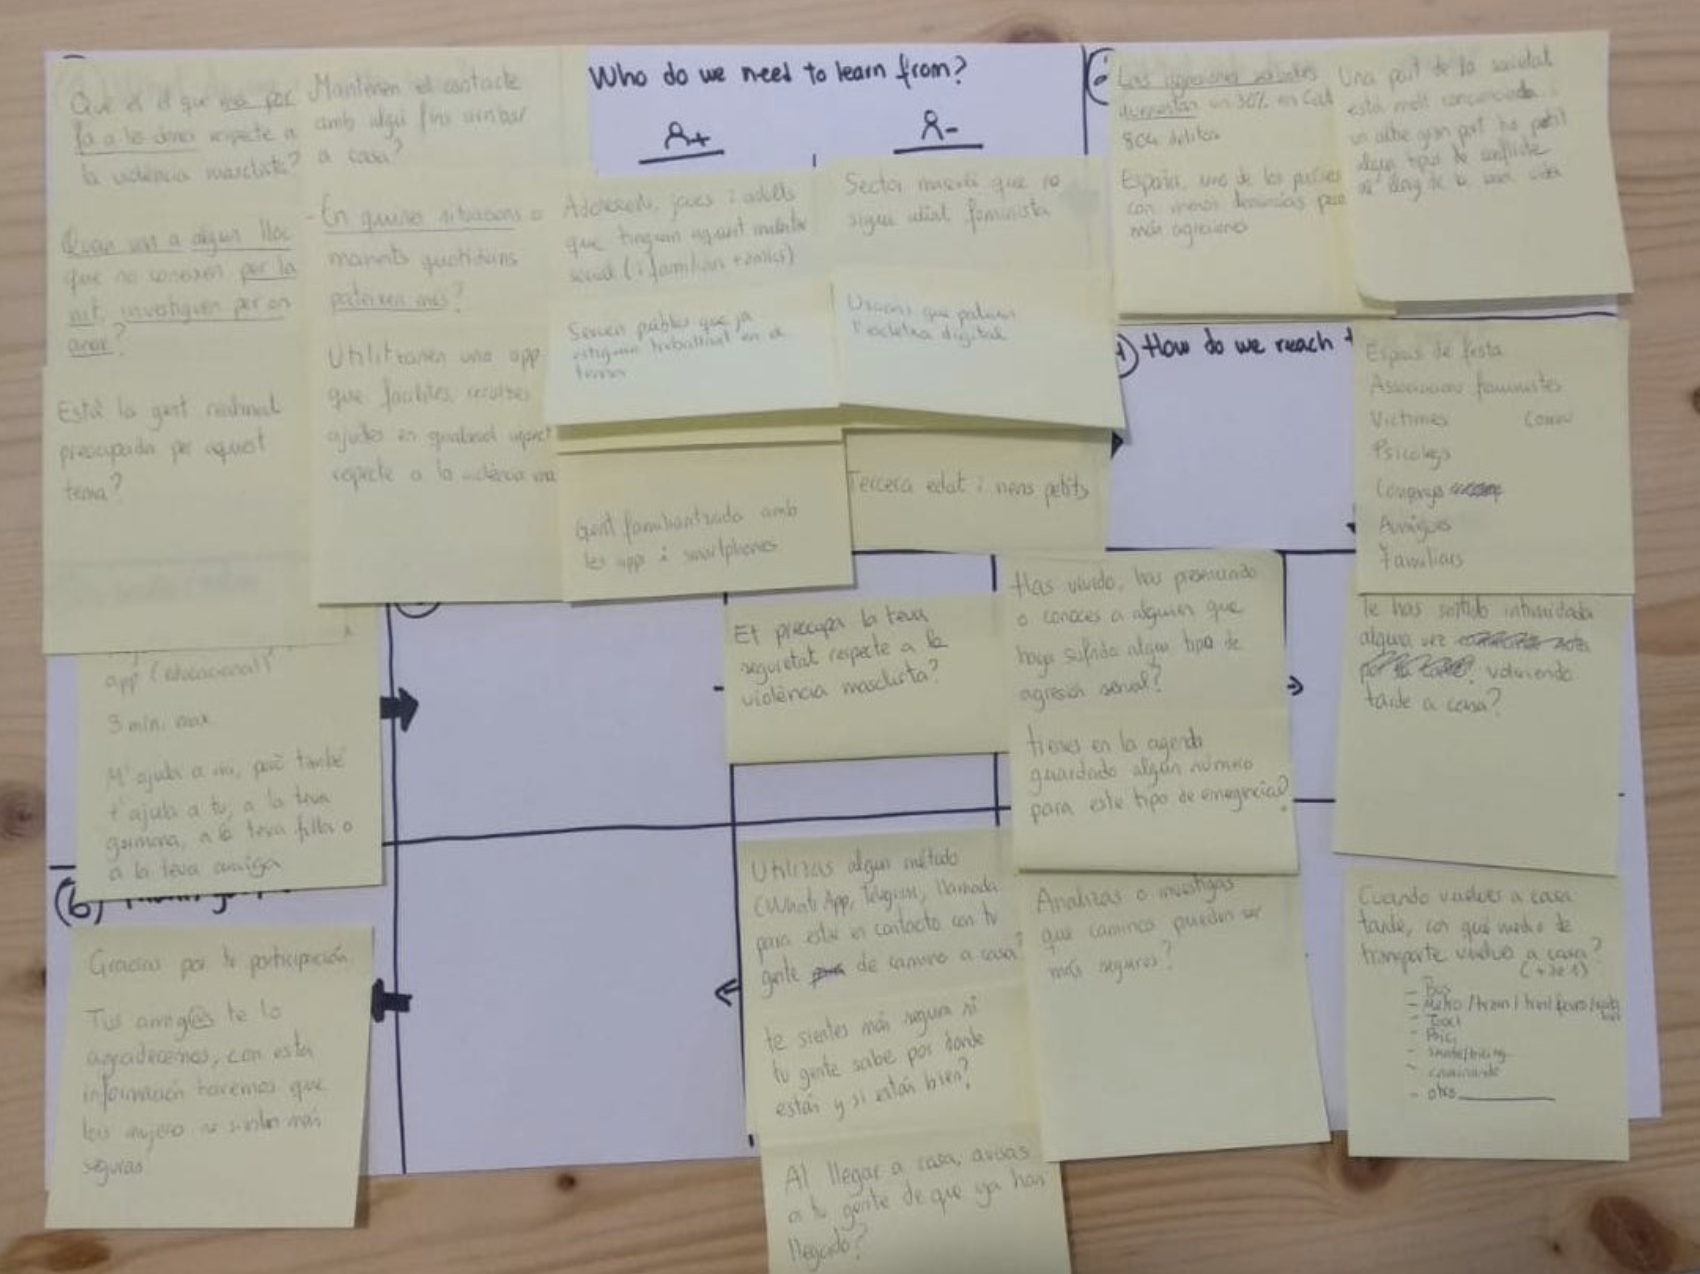 Que és el que més por
fa a les dones respecte a
la violència masclista?
Quan van a algun lloc
que no coneixen per la
nit, investiguen per on
anar?
Està la gent realment
preocupada per aquest
tema?
Mantenen el contacte
amb algú fins arribar
a casa?
- En quines situacions o
moments quotidians
pateixen més?
Utilitzarien una app
que facilites, recolzes
ajudes en qualsevol aspect
respecte a la violència ma
Who do we need to learn from?
Adolescents, joves i adults
que tinguin aquest malestar
social (i familiars + amics)
Serveis públics que ja
estiguin treballant en el
tema
Gent familiaritzada amb
les app i smartphones
Sector masculí que no
sigui aliat feminista
Usuaris que pateixen
l'escletxa digital
Tercera edat i nens petits
Las agresiones sexuales
aumentan un 30% en Cat
804 delitos
España, uno de los países
con menos denuncias pero
más agresiones
Una part de la societat
està molt conscienciada i
un altre gran part ha patit
algun tipus de conflicte
al llarg de la seva vida
How do we reach t
Espais de festa
Associacions feministes
Víctimes
Correu
Psicòlegs
Companys
Amigues
Familiars
app (educacional)
3 min. max
M'ajuda a mi, però també
t'ajuda a tu, a la teva
germana, a la teva filla o
a la teva amiga
Et preocupa la teva
seguretat respecte a la
violència masclista?
Has vivido, has presenciado
o conoces a alguien que
haya sufrido algún tipo de
agresión sexual?
tienes en la agenda
guardado algún número
para este tipo de emergencias?
Te has sentido intimidada
alguna vez
volviendo
tarde a casa?
(6)
Gracias por tu participación
Tus amig@s te lo
agradecemos, con esta
información haremos que
las mujeres se sientan más
seguras
Utilizas algún método
(WhatsApp, Telegram, llamada
para estar en contacto con tu
gente de camino a casa?
te sientes más segura si
tu gente sabe por donde
estás y si estás bien?
Al llegar a casa, avisas
a tu gente de que ya has
llegado?
Analizas o investigas
que caminos pueden ser
más seguros?
Cuando vuelves a casa
tarde, con qué medio de
transporte vuelves a casa?
(+ de 1)
- Bus
- Metro / tram / tren /
- Taxi
- Bici
- skate/
- caminando
- otro